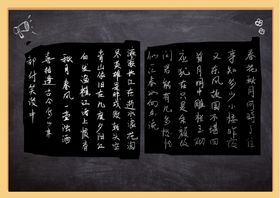 春花秋月何时了往
事知多少小楼昨夜
又东风故国不堪回
首月明中雕栏玉砌
应犹在只是朱颜改
问君能有几多愁恰
似一江春水向东流
滚滚长江东逝水浪花淘
尽英雄是非成败转头空
青山依旧在几度夕阳红
白发渔樵江渚上惯看
秋月春风一壶浊酒
喜相逢古今多少事
都付笑谈中